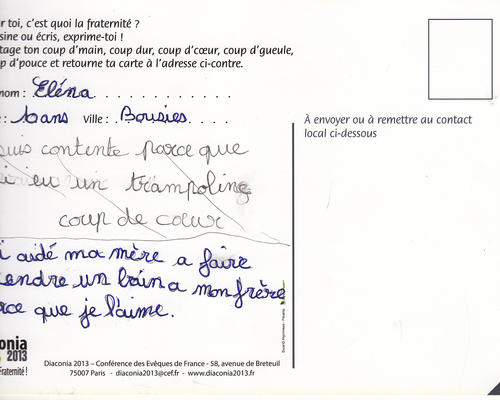 r toi, c'est quoi la fraternité ?
sine ou écris, exprime-toi !
tage ton coup d'main, coup dur, coup d'cœur, coup d'gueule,
p d'pouce et retourne ta carte à l'adresse ci-contre.
nom : Eléna
: 6 ans Ville : Bousies
À envoyer ou à remettre au contact
local ci-dessous
suis contente parce que
i eu un trampoline
coup de cœur
i aidé ma mère a faire
endre un bain a mon frère
rce que je l'aime.
onia
2013
Fraternité !
Diaconia 2013 – Conférence des Evêques de France - 58, avenue de Breteuil
75007 Paris - diaconia2013@cef.fr - www.diaconia2013.fr